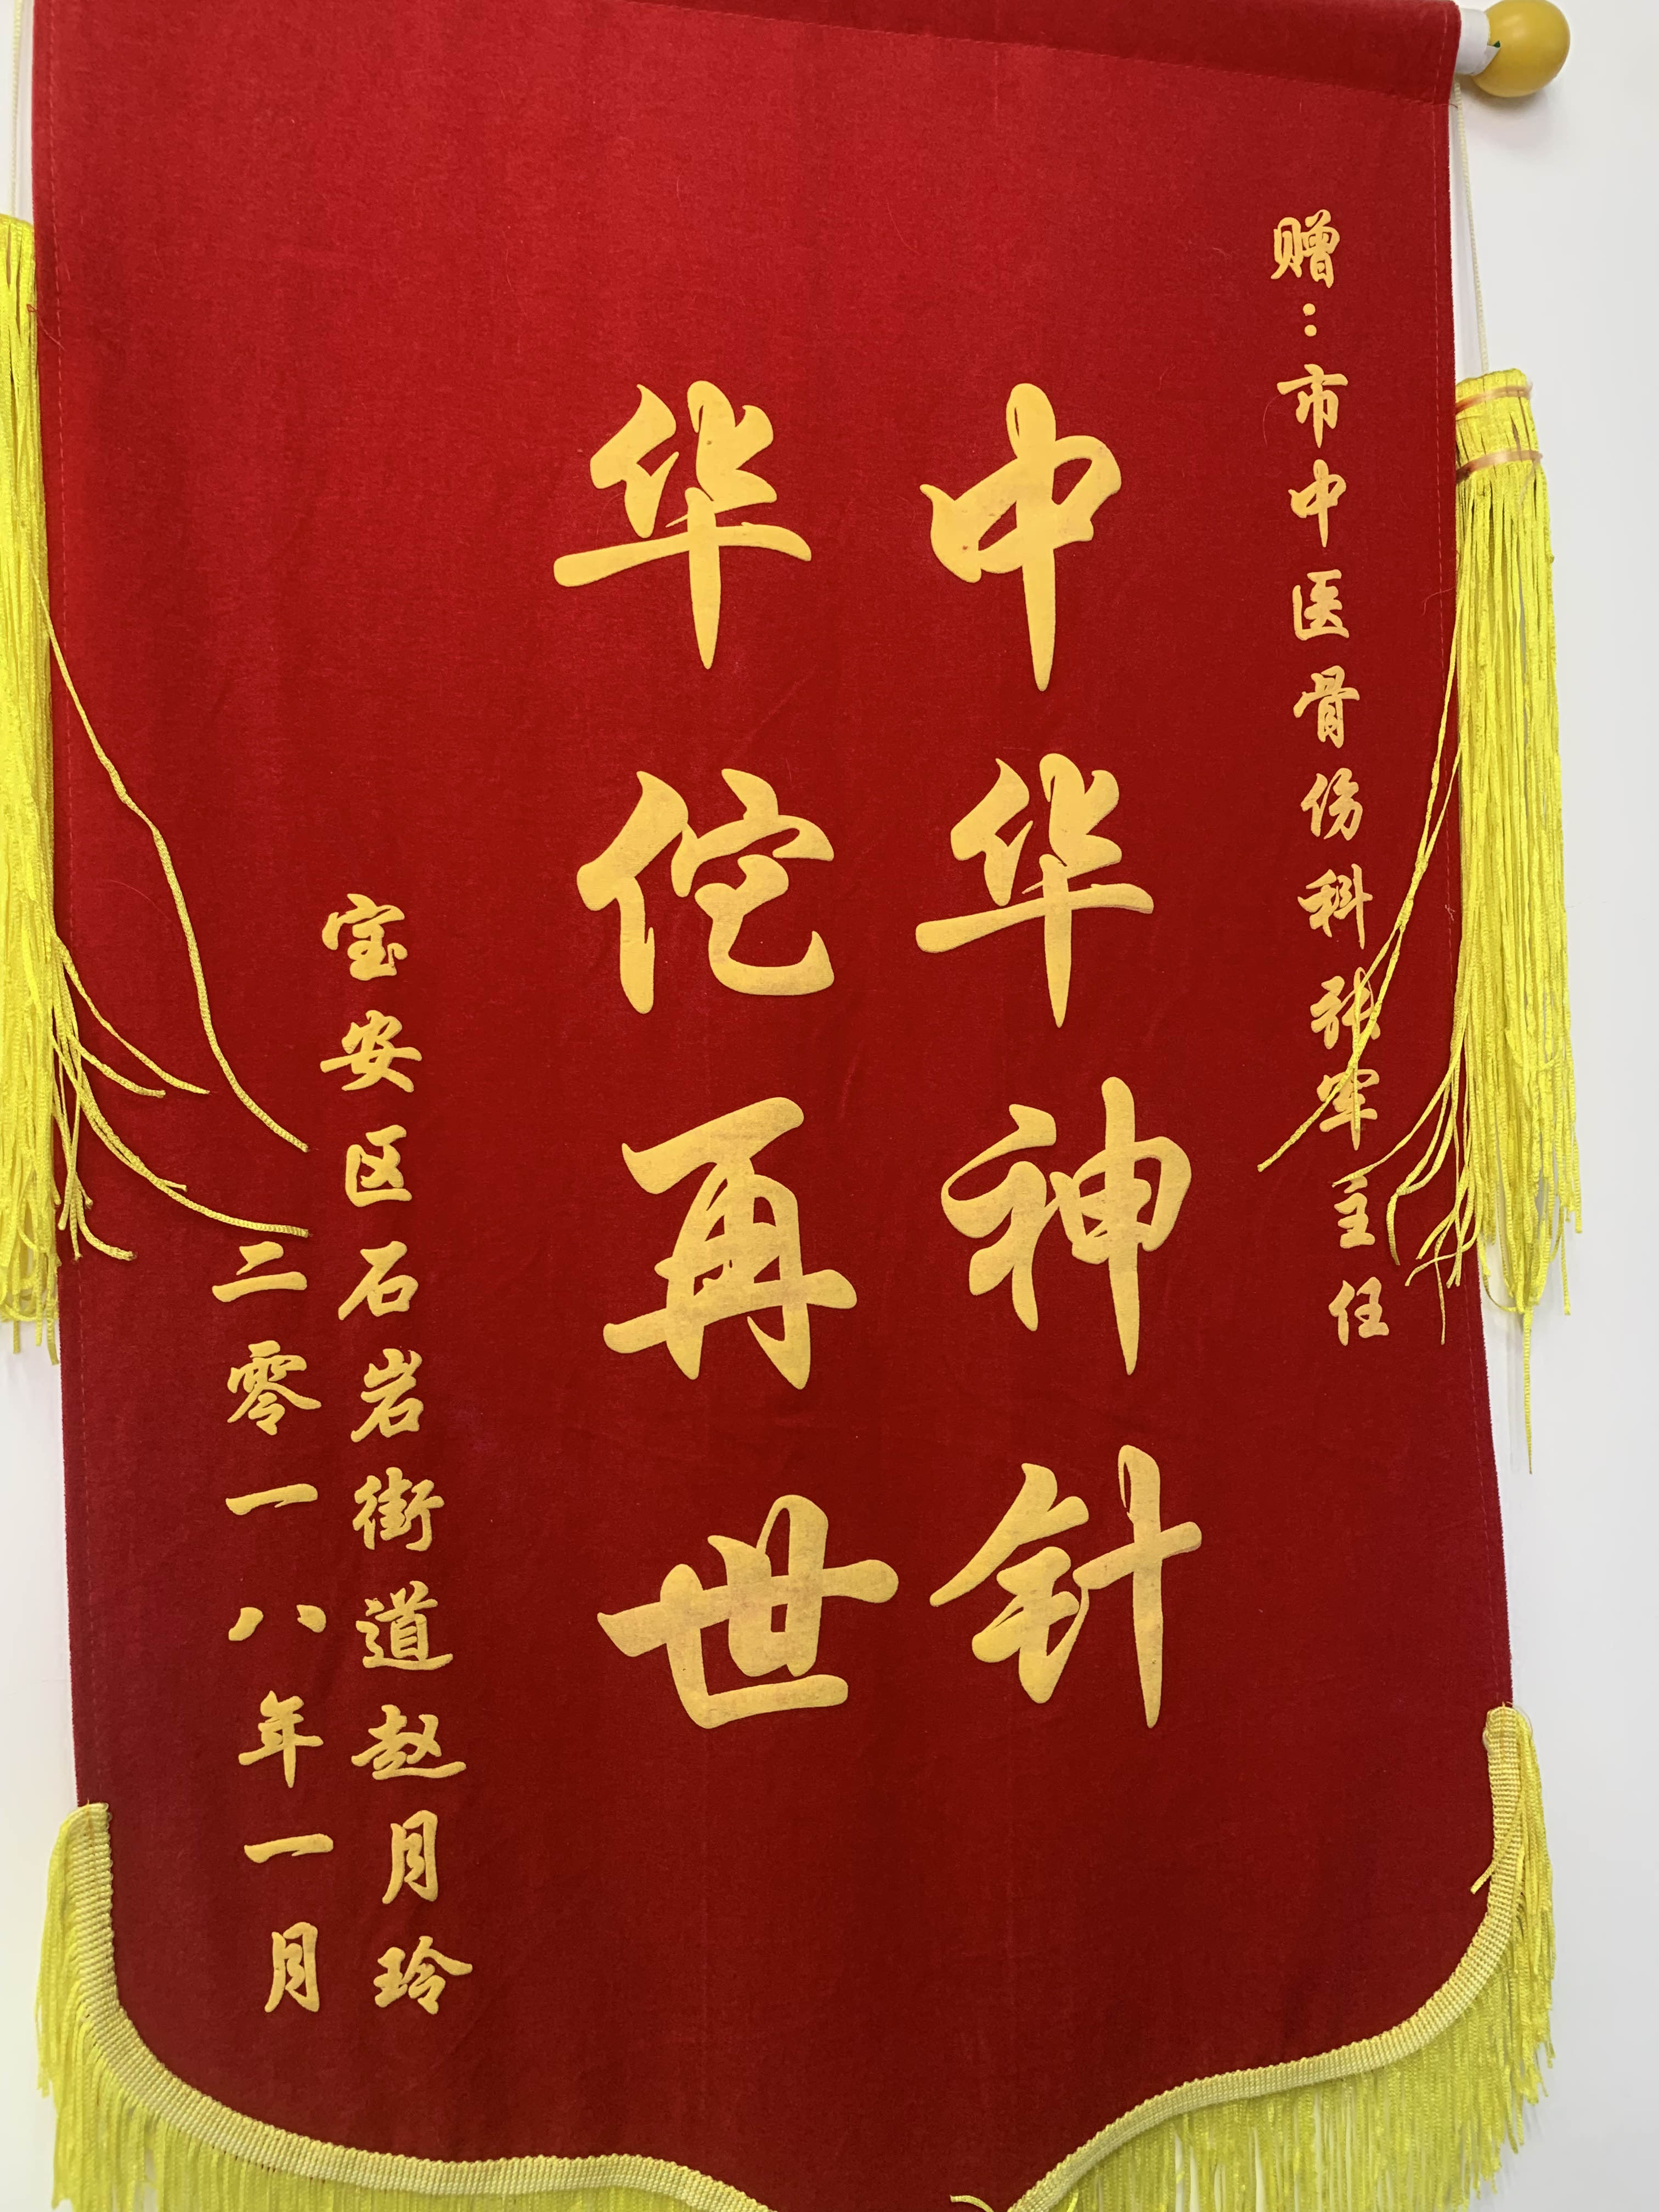 赠：市中医骨伤科张军主任
中华神针
华佗再世
宝安区石岩街道赵月玲
二零一八年一月